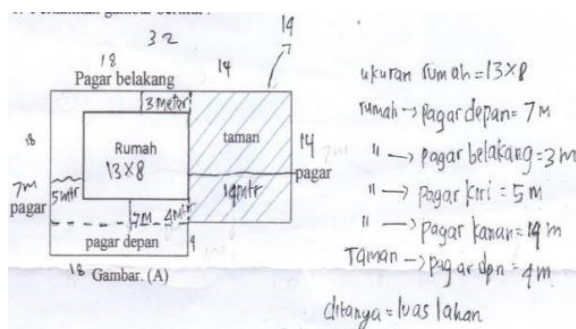 32
14
18
14
Pagar belakang
3 meter
18
Rumah
13x8
taman
14
pagar
14 mtr
7m
5 mtr
pagar
7M
4 mtr
pagar depan
4
18
Gambar. (A)
ukuran rumah = 13x8
rumah → pagar depan = 7 M
" → pagar belakang = 3 m
" → pagar kiri = 5 m
" → pagar kanan = 14 m
Taman → pagar dpn = 4 m
ditanya = luas lahan